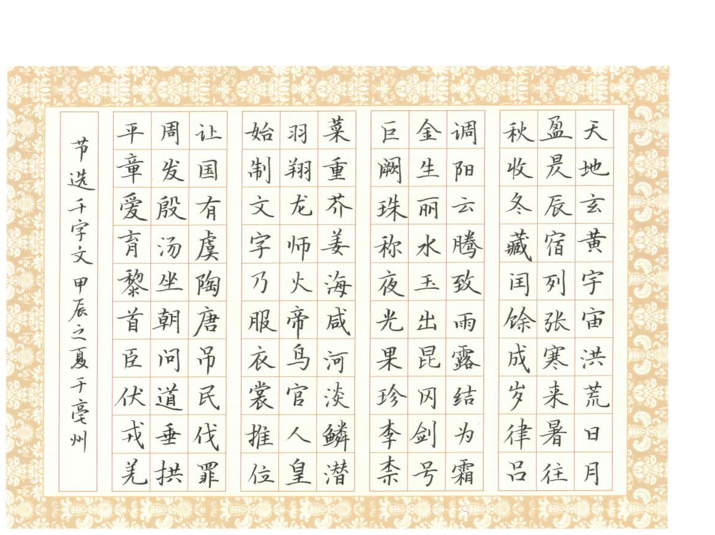 天地玄黄宇宙洪荒日月
盈昃辰宿列张寒来暑往
秋收冬藏闰馀成岁律吕
调阳云腾致雨露结为霜
金生丽水玉出昆冈剑号
巨阙珠称夜光果珍李柰
菜重芥姜海咸河淡鳞潜
羽翔龙师火帝鸟官人皇
始制文字乃服衣裳推位
让国有虞陶唐吊民伐罪
周发殷汤坐朝问道垂拱
平章爱育黎首臣伏戎羌
节选千字文 甲辰之夏于亳州